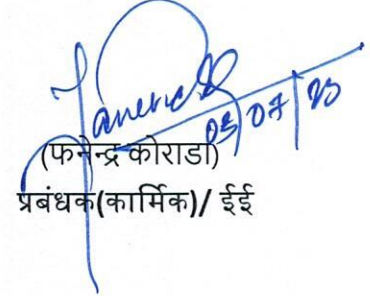 05/07/23
(फनेन्द्र कोराडा)
प्रबंधक(कार्मिक)/ ईई